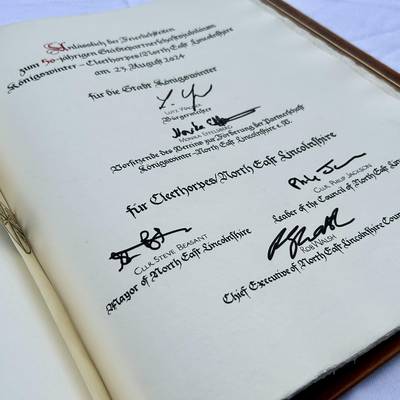 Anlässlich der Feierlichkeiten
zum 50-jährigen Städtepartnerschaftsjubiläum
Königswinter – Cleethorpes/North East Lincolnshire
am 23. August 2024
für die Stadt Königswinter
Lutz Wagner
Bürgermeister
Monika Effelsberg
Vorsitzende des Vereins zur Förderung der Partnerschaft
Königswinter–North East Lincolnshire e.V.
für Cleethorpes/North East Lincolnshire
Cllr Philip Jackson
Leader of the Council of North East Lin
Cllr Steve Beasant
Mayor of North East Lincolnshire
Rob Walsh
Chief Executive of North East Lincolnshire Counc